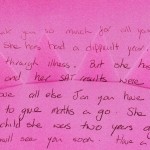 you so much for all you
She has had a difficult year
through illness. But she ha
and her SAT results were
ove all else Jan you have
to give maths a go. She
child she was two years a
will see you soon. Have a